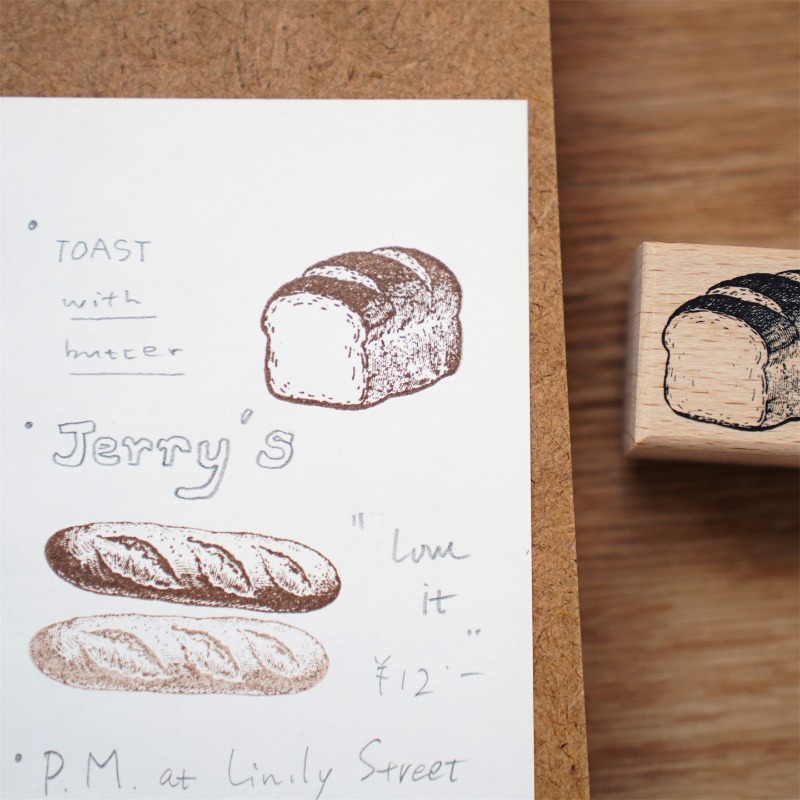 • TOAST
with
butter
• Jerry's
" Love
it "
¥12.—
• P.M. at Linily Street